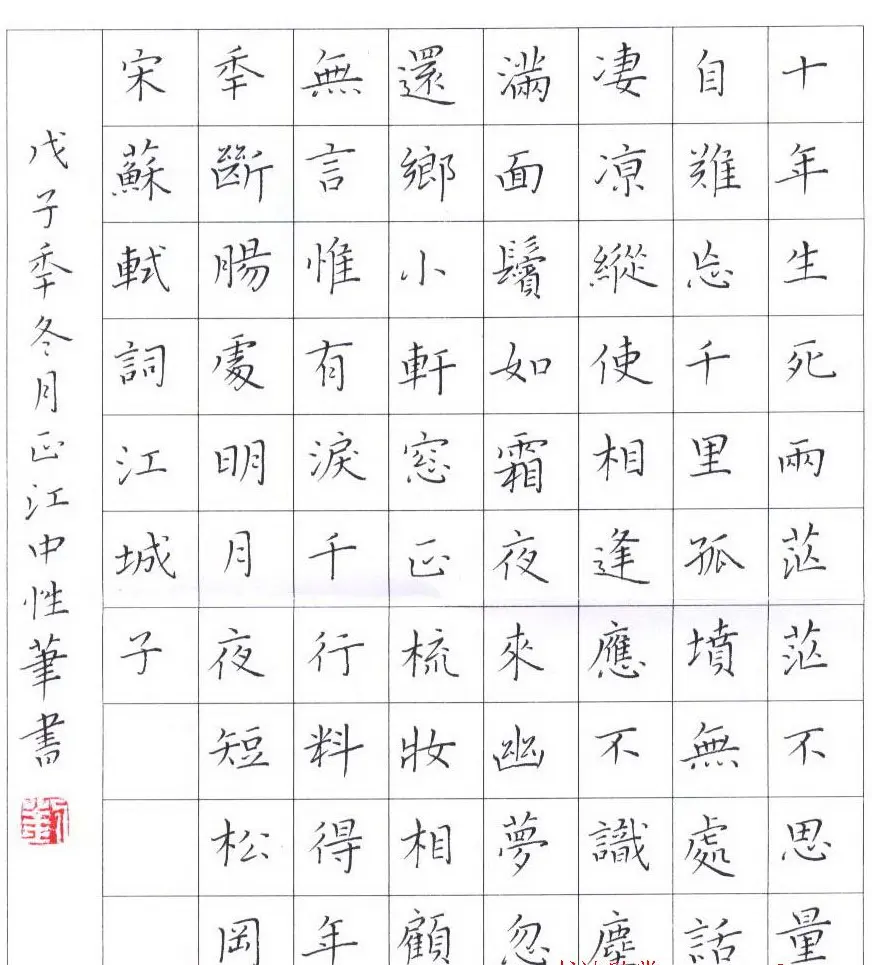 十年生死兩茫茫不思量
自難忘千里孤墳無處話
凄凉縱使相逢應不識塵
滿面鬢如霜夜來幽夢忽
還鄉小軒窓正梳妝相顧
無言惟有淚千行料得年
秊斷腸處明月夜短松岡
宋蘇軾詞江城子
戊子秊冬月正江中性筆書